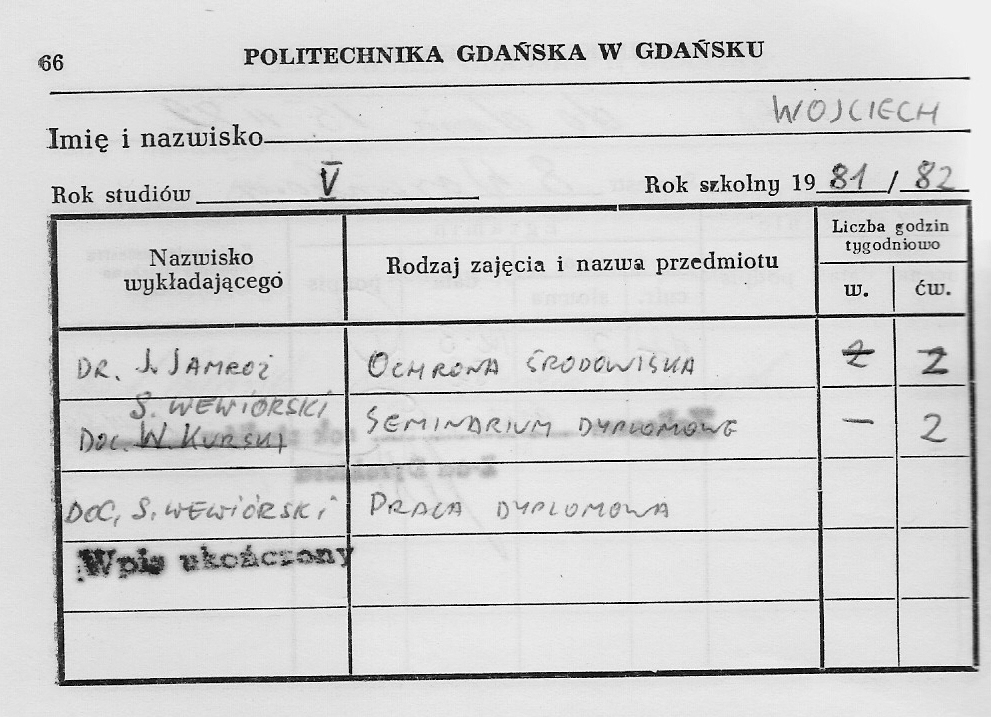 66 POLITECHNIKA GDAŃSKA W GDAŃSKU
Imię i nazwisko WOJCIECH
Rok studiów V Rok szkolny 19 81 / 82
Nazwisko wykładającego Rodzaj zajęcia i nazwa przedmiotu Liczba godzin tygodniowo
w. ćw.
DR. J. JAMROŻ OCHRONA ŚRODOWISKA 2 2
S. WEWIÓRSKI
DOC. W. KURSKI SEMINARIUM DYPLOMOWE — 2
DOC. S. WEWIÓRSKI PRACA DYPLOMOWA
Wpis ukończony